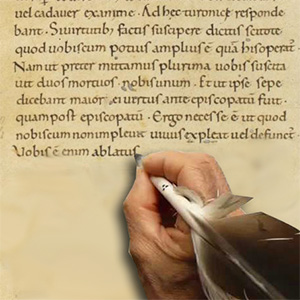 uel cadauer exanime. Ad hec turonice responde
bant. Si uirtutibus factis suscipere dictis scitote
quod uobiscum potius amplius ē quā his operat.
Nam ut preter mutamus plurima uobis suscita
uit duos mortuos nobis unum. Et ut ipse sepe
dicebant maior ei uertus ante episcopatū fuit.
quam post episcopatū. Ergo necesse ē ut quod
nobiscum non impleuit uiuus expleat uel defunct
Uobis ē enim ablatus